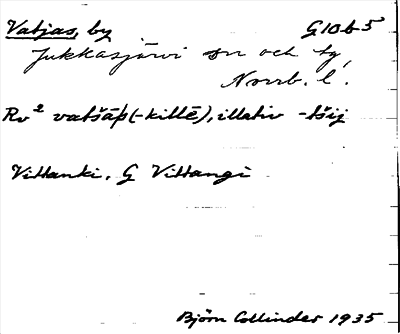 Vatjas, by G10b5
Jukkasjärvi sn och tg,
Norrb. l.
Rv² vatšáp(-killē), illativ -tšij
Vittanki, G Vittangi
Björn Collinder 1935